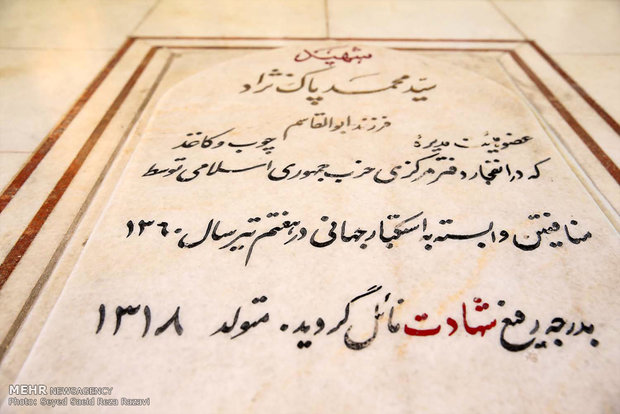 شهید
سیّد محمد پاک نژاد
فرزند ابوالقاسم
عضو هیئت مدیره چوب و کاغذ
که در انفجار دفتر مرکزی حزب جمهوری اسلامی توسط
منافقین وابسته به استکبار جهانی در هفتم تیر سال ۱۳۶۰
بدرجه رفیع شهادت نائل گردید. متولد ۱۳۱۸
MEHR NEWSAGENCY
Photo: Seyed Saeid Reza Razavi